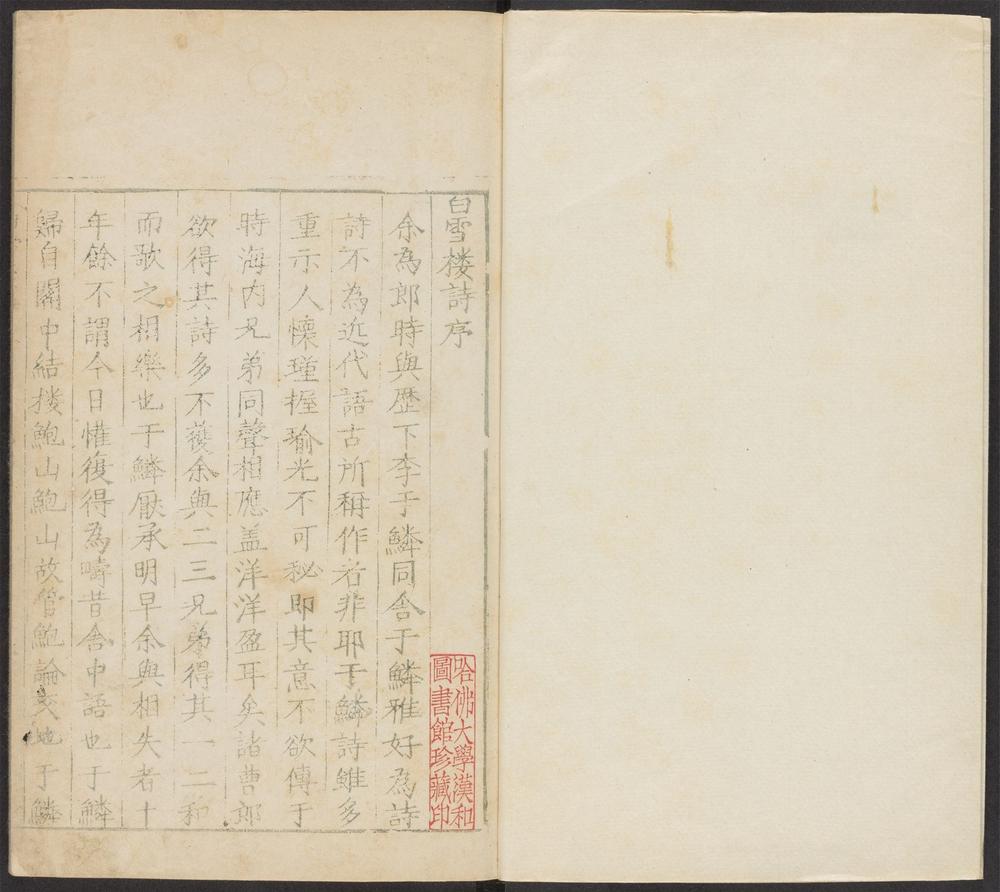 白雪楼詩序
余為郎時與歴下李于鱗同舍于鱗雅好為詩
詩不為近代語古所稱作者非耶于鱗詩雖多
重示人懷瑾握瑜光不可秘即其意不欲傳于
時海内兄弟同聲相應盖洋洋盈耳矣諸曹郎
欲得其詩多不獲余與二三兄弟得其一二和
而歌之相樂也于鱗厭承明早余與相失者十
年餘不謂今日惟復得為疇昔舍中語也于鱗
歸自關中結楼鮑山鮑山故管鮑論交地于鱗
哈佛大學漢和
圖書館珍藏印